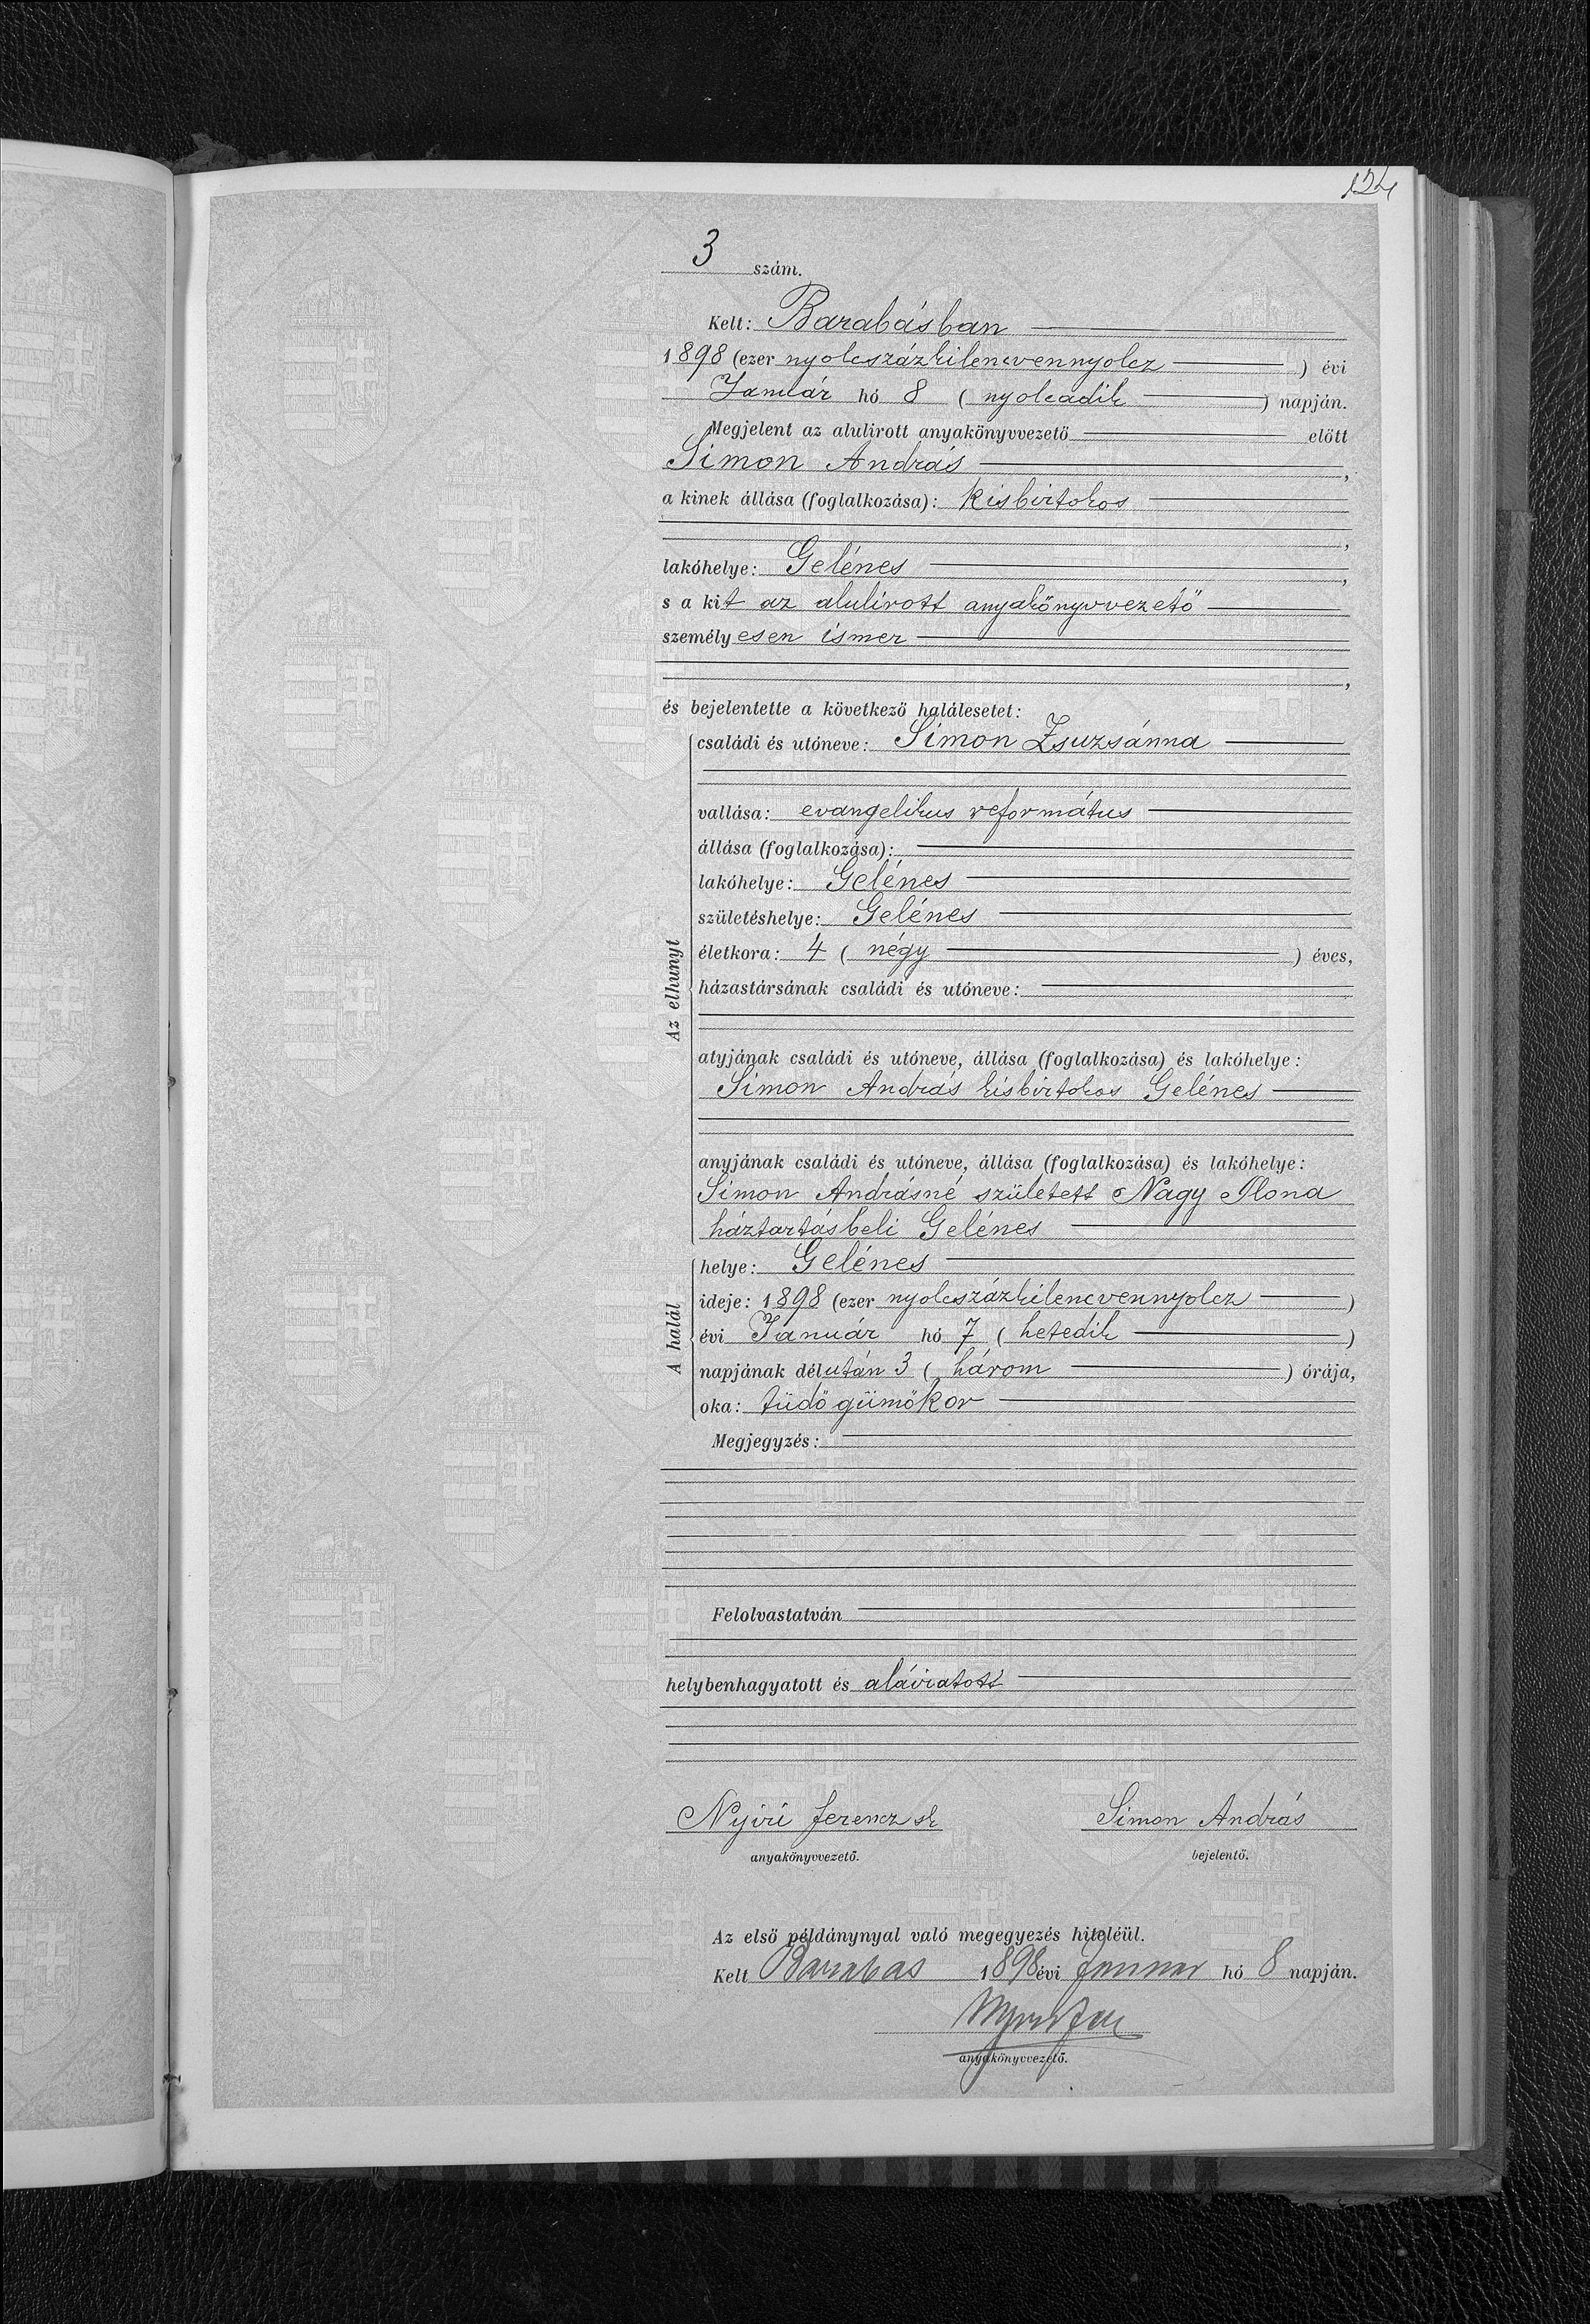 124
3 szám.
Kelt: Barabásban
1898 (ezer nyolcszázkilencvennyolcz ) évi
Január hó 8 ( nyolcadik ) napján.
Megjelent az alulirott anyakönyvvezető előtt
Simon András ,
a kinek állása (foglalkozása): kisbirtokos
,
lakóhelye: Gelénes ,
s a kit az alulirott anyakönyvvezető
személyesen ismer
,
és bejelentette a következő halálesetet:
Az elhunyt
családi és utóneve: Simon Zsuzsánna
vallása: evangelikus református
állása (foglalkozása):
lakóhelye: Gelénes
születéshelye: Gelénes
életkora: 4 ( négy ) éves,
házastársának családi és utóneve:
atyjának családi és utóneve, állása (foglalkozása) és lakóhelye:
Simon András kisbirtokos Gelénes
anyjának családi és utóneve, állása (foglalkozása) és lakóhelye:
Simon Andrásné született Nagy Ilona
háztartásbeli Gelénes
A halál
helye: Gelénes
ideje: 1898 (ezer nyolcszázkilencvennyolcz )
évi Január hó 7 ( hetedik )
napjának délután 3 ( három ) órája,
oka: tüdő gümőkor
Megjegyzés:
Felolvastatván
helybenhagyatott és aláiratott
Nyiri Ferencz sk Simon András
anyakönyvvezető. bejelentő.
Az első példánynyal való megegyezés hiteléül.
Kelt Barabas 1898 évi Januar hó 8 napján.
anyakönyvvezető.